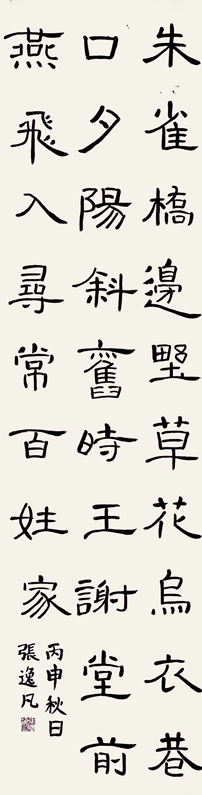 朱雀橋邊野草花烏衣巷
口夕陽斜舊時王謝堂前
燕飛入尋常百姓家
丙申秋日
張逸凡